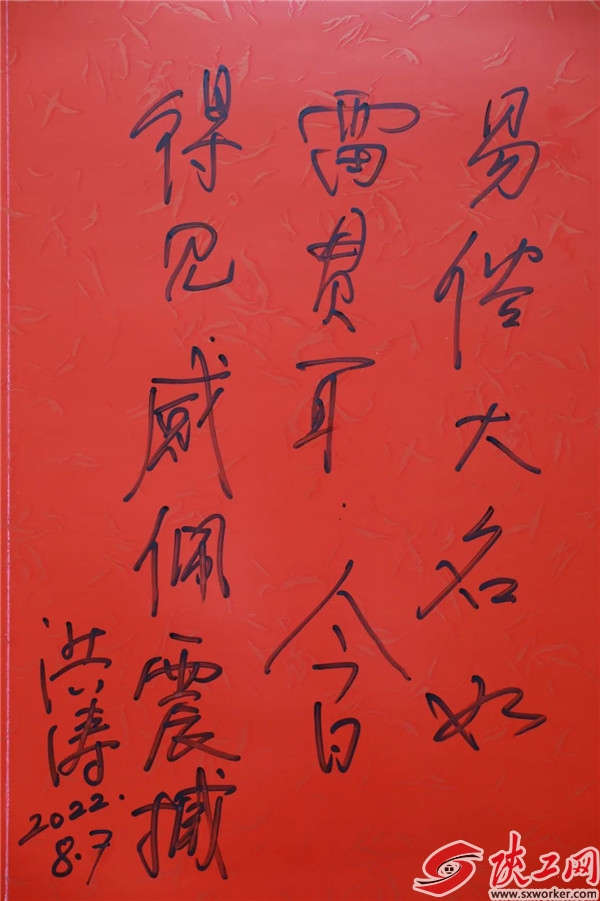 易俗大名如
雷贯耳.今日
得见威佩震撼
洪涛
2022.
8.7
陕工网
www.sxworker.com